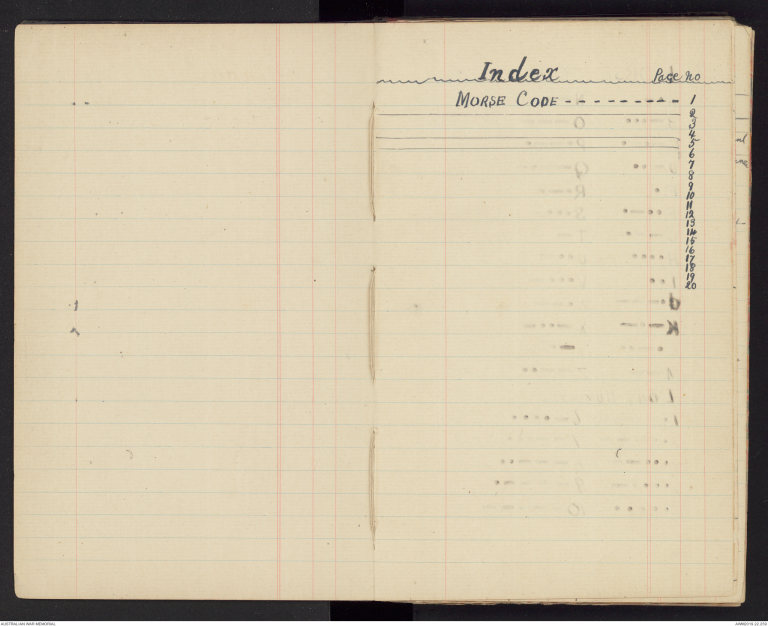 Index Page no
MORSE CODE - - - - - - - - - 1
2
3
4
5
6
7
8
9
10
11
12
13
14
15
16
17
18
19
20
AUSTRALIAN WAR MEMORIAL